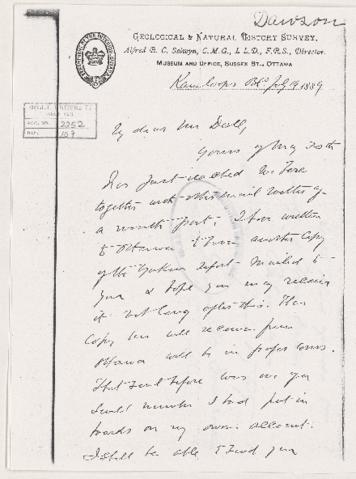 Dawson
GEOLOGICAL & NATURAL HISTORY SURVEY.
Alfred R. C. Selwyn, C.M.G., LL.D., F.R.S., Director.
MUSEUM AND OFFICE, SUSSEX ST., OTTAWA
Kamloops B.C. July 19 1889
My dear Mr Dall,
Yours of May
has just reached me here
together with other mail matter of
a month past. I have written
to Ottawa to have another Copy
of the Yukon report mailed to
you & hope you may receive
it not long after this. The
Copy you will receive from
Ottawa will be in proper covers.
That sent before was one of
small number I had put in
boards on my own account.
I shall be able to send you